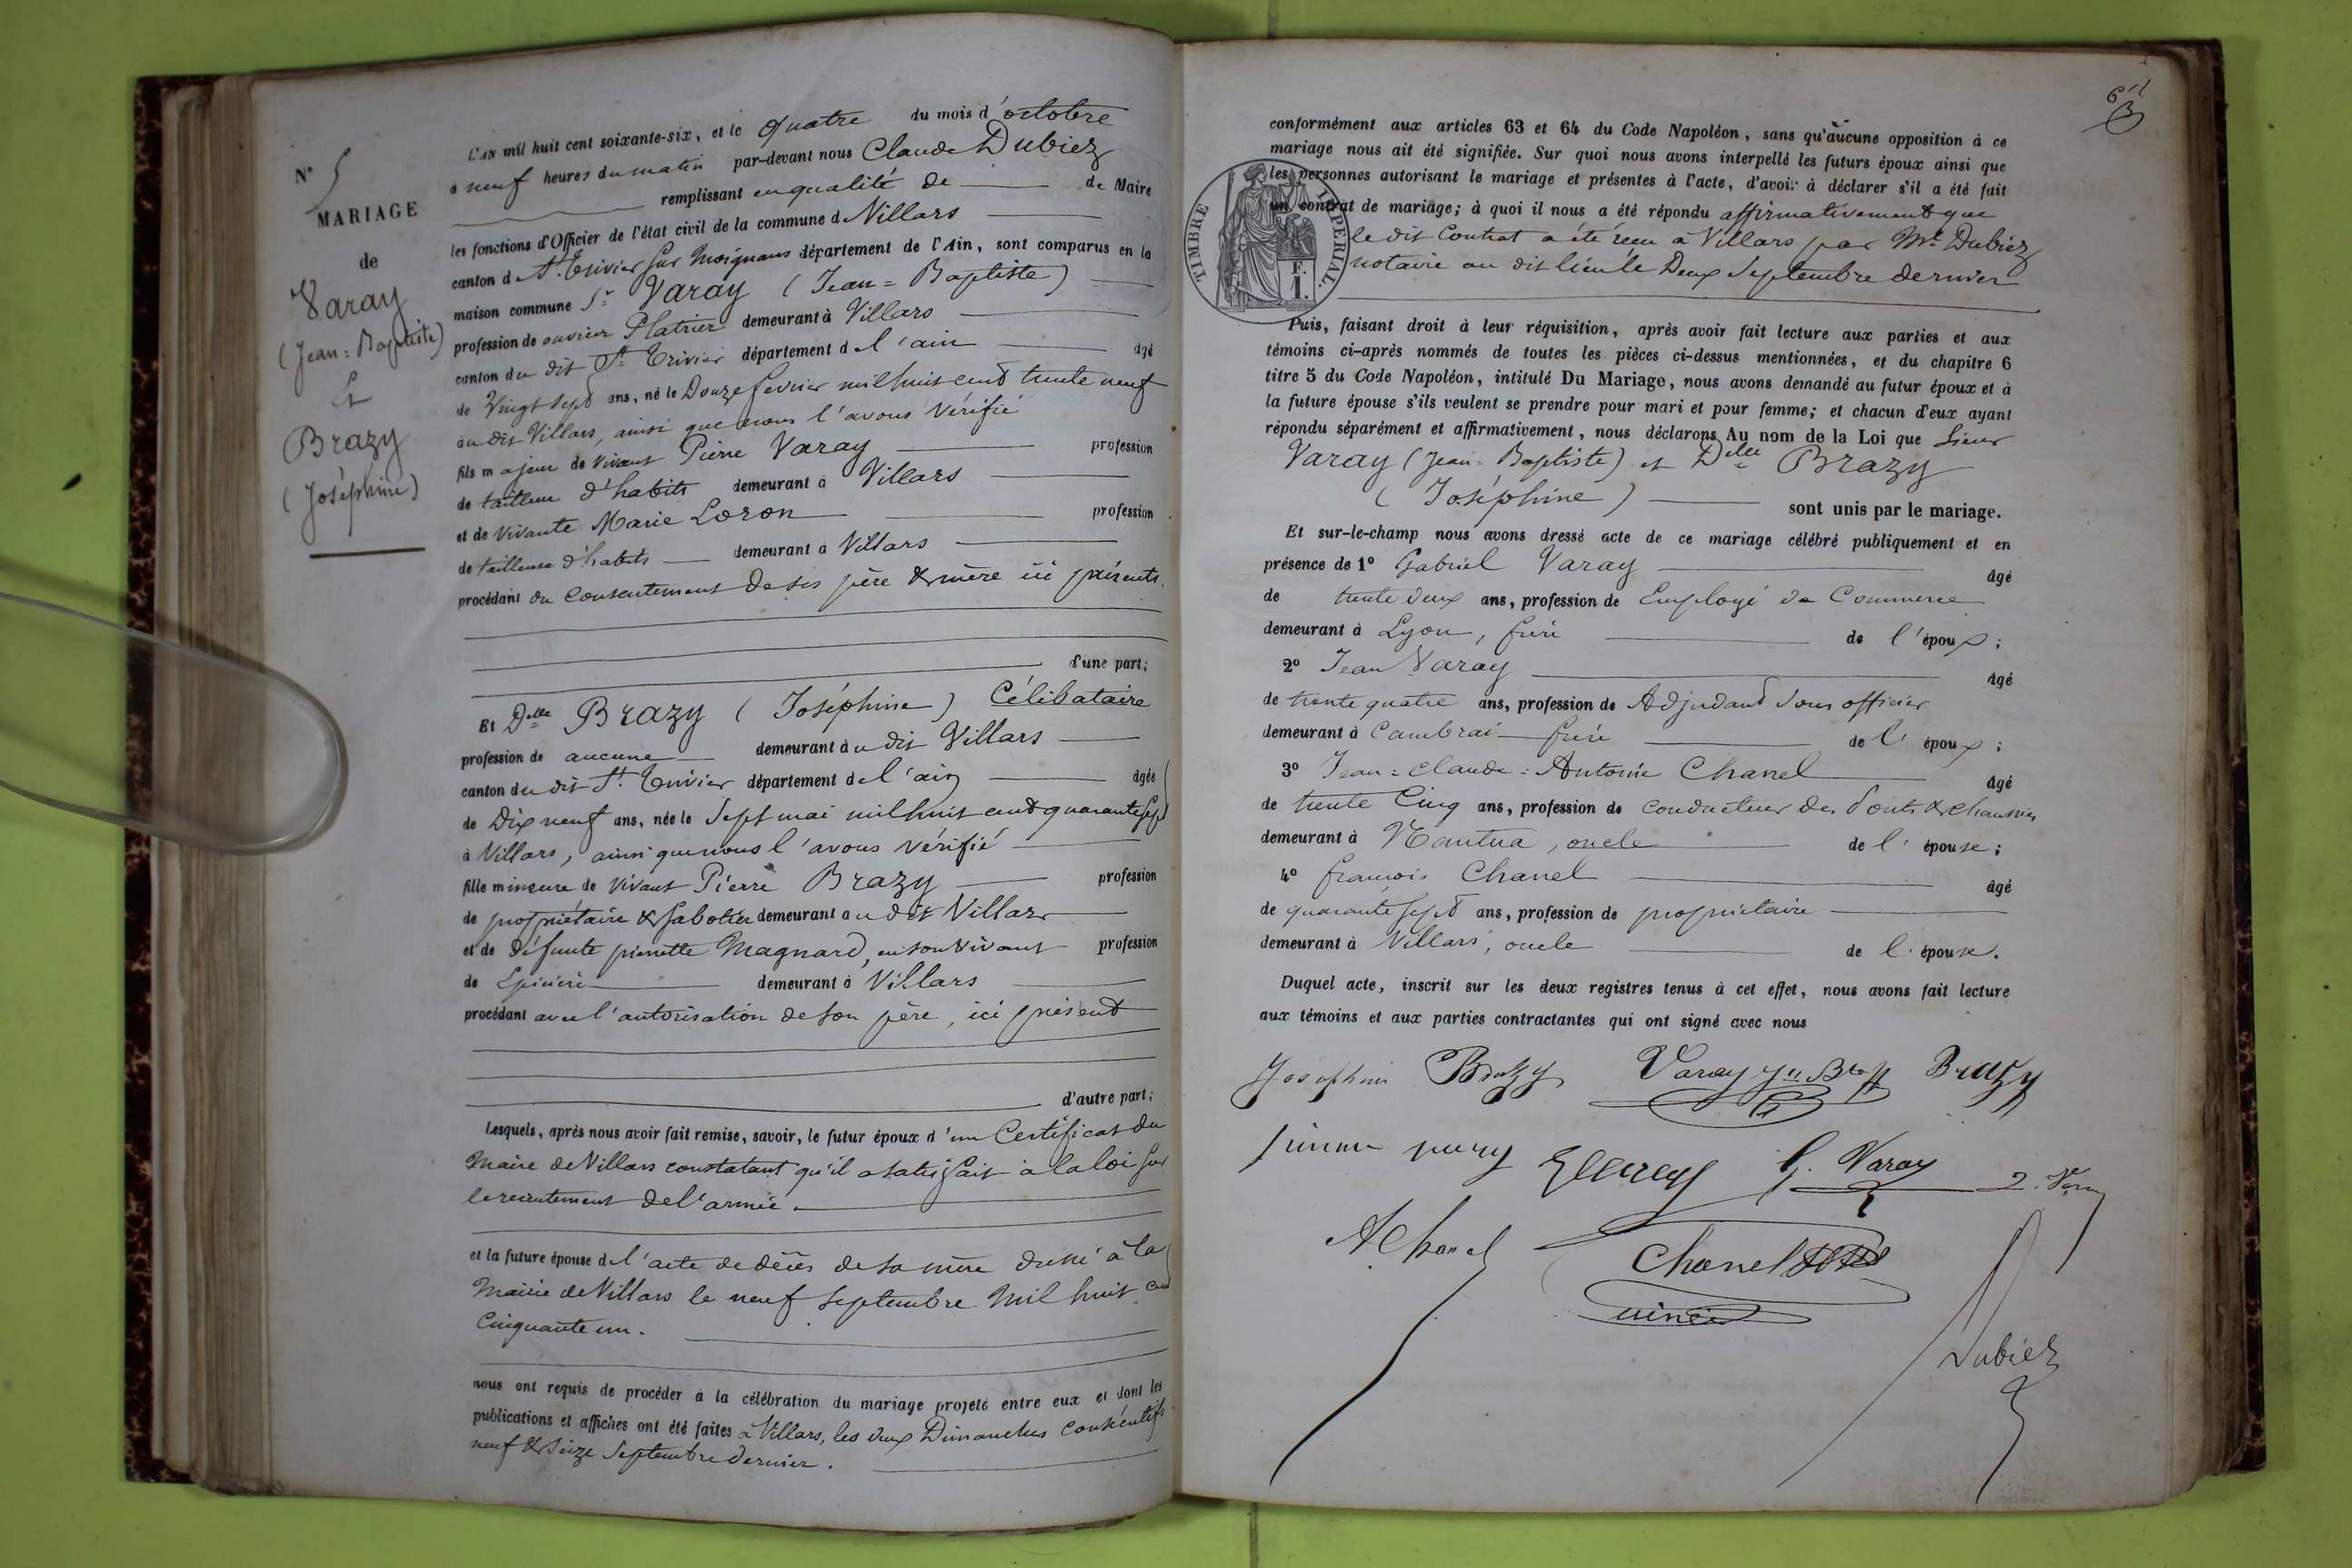 N° 5
MARIAGE
de
Varay
(Jean = Baptiste)
Et
Brazy
(Joséphine)
L'AN mil huit cent soixante-six, et le quatre du mois d'octobre
à neuf heures du matin par-devant nous Claude Dubiez
remplissant en qualité de de Maire
les fonctions d'Officier de l'état civil de la commune d Villars
canton de St. Trivier sur Moignans département de l'Ain, sont comparus en la
maison commune Sr Varay (Jean = Baptiste)
profession de ouvrier Platrier demeurant à Villars
canton du dit St. Trivier département de l'ain âgé
de Vingt sept ans, né le Douze fevrier mil huit cent trente neuf
au dit Villars, ainsi que nous l'avons vérifié
fils majeur de vivant Pierre Varay profession
de tailleur d'habits demeurant à Villars
et de vivante Marie Loron profession
de tailleuse d'habits demeurant à Villars
procédant du consentement de ses père & mère ici présents.
d'une part;
Et Delle Brazy (Joséphine) Célibataire
profession de aucune demeurant au dit Villars
canton du dit St. Trivier département de l'ain âgée
de Dix neuf ans, née le Sept mai mil huit cent quarante sept
à Villars, ainsi que nous l'avons vérifié
fille mineure de vivant Pierre Brazy profession
de propriétaire & sabotier demeurant au dit Villars
et de défunte pierrette Magnard, en son vivant profession
de Epicière demeurant à Villars
procédant avec l'autorisation de son père, ici présent
d'autre part;
Lesquels, après nous avoir fait remise, savoir, le futur époux d'un Certificat du
Maire de Villars constatant qu'il a satisfait à la loi sur
le recrutement de l'armée.
et la future épouse de l'acte de décès de sa mère dressé à la
Mairie de Villars le neuf septembre mil huit cent
Cinquante un.
nous ont requis de procéder à la célébration du mariage projeté entre eux et dont les
publications et affiches ont été faites à Villars, les deux Dimanches consécutifs
neuf & seize Septembre dernier.
conformément aux articles 63 et 64 du Code Napoléon, sans qu'aucune opposition à ce
mariage nous ait été signifiée. Sur quoi nous avons interpellé les futurs époux ainsi que
les personnes autorisant le mariage et présentes à l'acte, d'avoir à déclarer s'il a été fait
un contrat de mariage; à quoi il nous a été répondu affirmativement que
le dit Contrat a été reçu à Villars par Me Dubiez
notaire au dit lieu le Deux Septembre dernier
TIMBRE IMPERIAL
F.
1.
Puis, faisant droit à leur réquisition, après avoir fait lecture aux parties et aux
témoins ci-après nommés de toutes les pièces ci-dessus mentionnées, et du chapitre 6
titre 5 du Code Napoléon, intitulé Du Mariage, nous avons demandé au futur époux et à
la future épouse s'ils veulent se prendre pour mari et pour femme; et chacun d'eux ayant
répondu séparément et affirmativement, nous déclarons Au nom de la Loi que Sieur
Varay (Jean = Baptiste) et Delle Brazy
(Joséphine) sont unis par le mariage.
Et sur-le-champ nous avons dressé acte de ce mariage célébré publiquement et en
présence de 1° Gabriel Varay âgé
de trente deux ans, profession de Employé de Commerce
demeurant à Lyon, frère de l'époux;
2° Jean Varay âgé
de trente quatre ans, profession de Adjudant Sous officier
demeurant à Cambrai frère de l'époux;
3° Jean = Claude = Antoine Chanel âgé
de trente Cinq ans, profession de conducteur des Ponts & chaussées
demeurant à Nantua, oncle de l'épouse;
4° francois Chanel âgé
de quarante sept ans, profession de propriétaire
demeurant à Villars, oncle de l'épouse.
Duquel acte, inscrit sur les deux registres tenus à cet effet, nous avons fait lecture
aux témoins et aux parties contractantes qui ont signé avec nous
Josephine Brazy Varay Jn Bte Brazy
G. Varay
AChanel Chanel
Dubiez